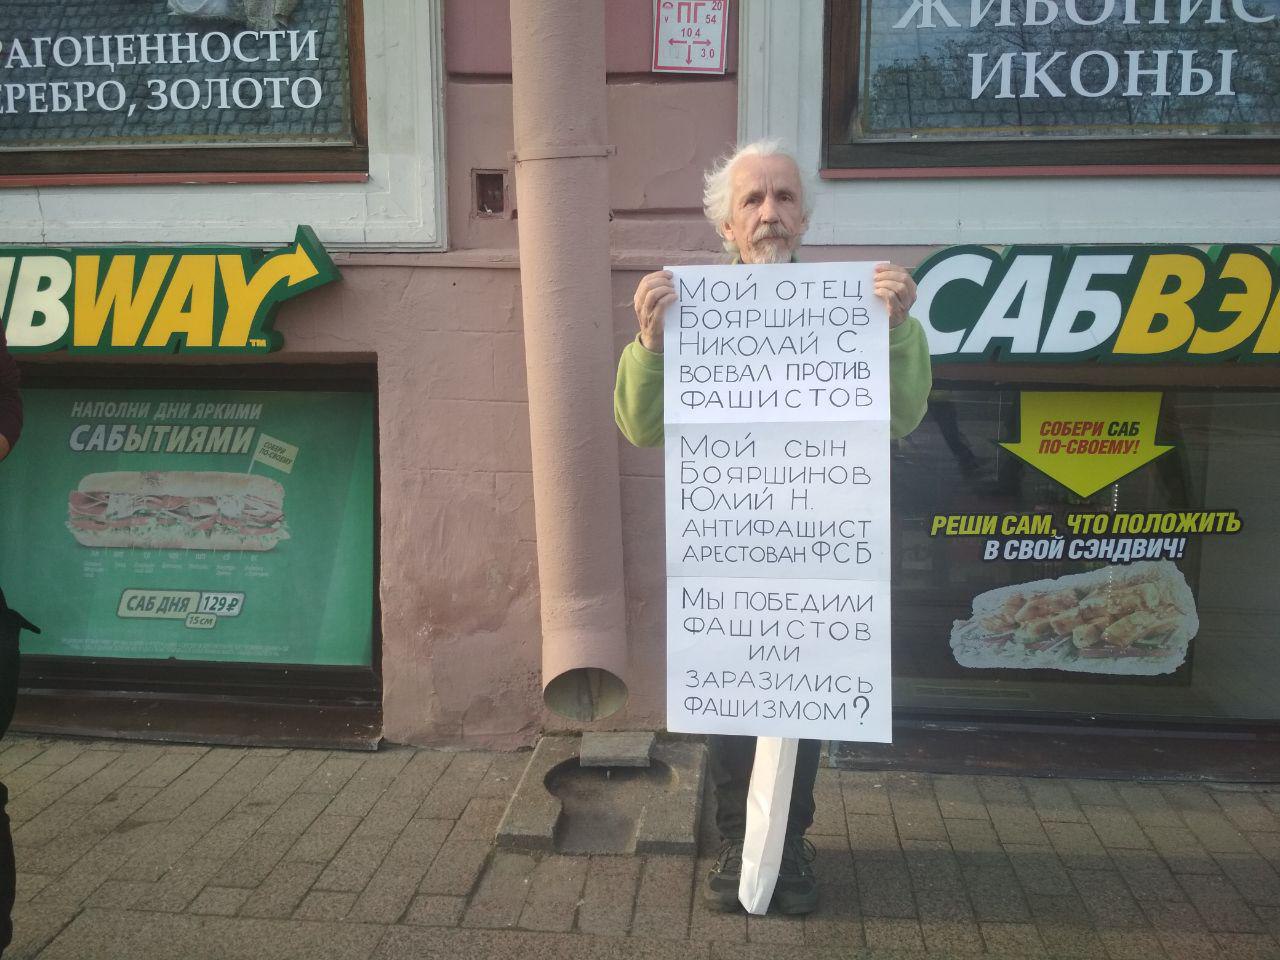 РАГОЦЕННОСТИ
ЕРЕБРО, ЗОЛОТО
ПГ 20
V 54
104
3,0
ЖИВОПИС
ИКОНЫ
UBWAY™
САБВЭ
НАПОЛНИ ДНИ ЯРКИМИ
САБЫТИЯМИ
СОБЕРИ
ПО-СВОЕМУ
САБ ДНЯ 129₽
15СМ
МОЙ ОТЕЦ
БОЯРШИНОВ
НИКОЛАЙ С.
ВОЕВАЛ ПРОТИВ
ФАШИСТОВ
МОЙ СЫН
БОЯРШИНОВ
ЮЛИЙ Н.
АНТИФАШИСТ
АРЕСТОВАН ФСБ
МЫ ПОБЕДИЛИ
ФАШИСТОВ
ИЛИ
ЗАРАЗИЛИСЬ
ФАШИЗМОМ?
СОБЕРИ САБ
ПО-СВОЕМУ!
РЕШИ САМ, ЧТО ПОЛОЖИТЬ
В СВОЙ СЭНДВИЧ!